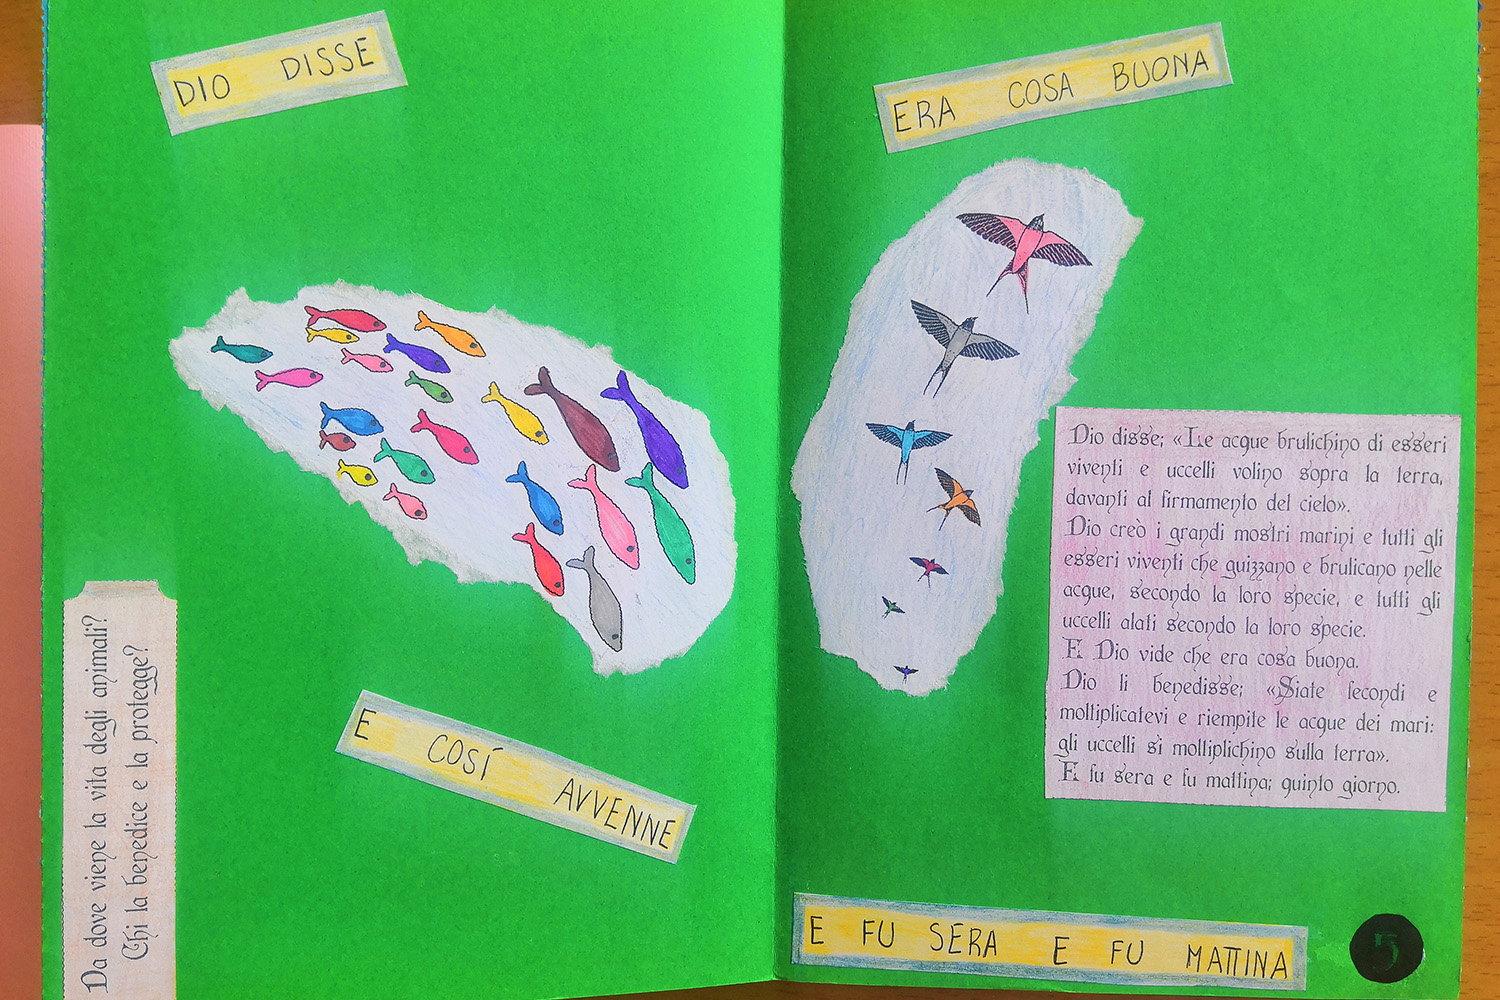 DIO DISSE
E COSÍ AVVENNE
Da dove viene la vita degli animali?
Chi la benedice e la protegge?
ERA COSA BUONA
Dio disse; «Le acque brulichino di esseri
viventi e uccelli volino sopra la terra,
davanti al firmamento del cielo».
Dio creò i grandi mostri marini e tutti gli
esseri viventi che guizzano e brulicano nelle
acque, secondo la loro specie, e tutti gli
uccelli alati secondo la loro specie.
E Dio vide che era cosa buona.
Dio li benedisse; «Siate fecondi e
moltiplicatevi e riempite le acque dei mari:
gli uccelli si moltiplichino sulla terra».
E fu sera e fu mattina; quinto giorno.
E FU SERA E FU MATTINA
5